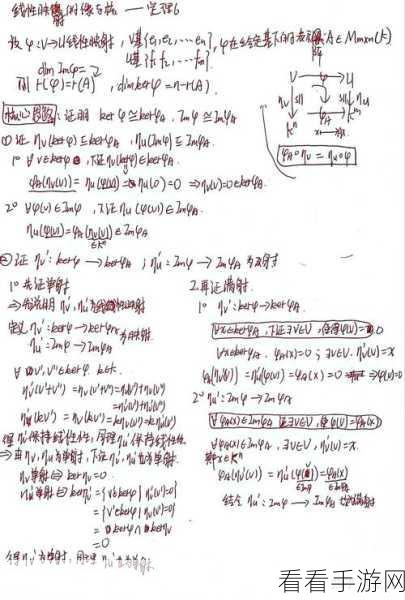 线性映射的像与核——定理6
设φ:V→U线性映射, V基{e₁,e₂,…en}, φ在给定基下的表示阵A∈Mm×n(K)
U基{f₁,f₂,…fm}
dim Imφ=
则 r(φ)=r(A), dim kerφ=n-r(A).
V φ U
ηV ηU
Kⁿ φA Kᵐ
φA∘ηV=ηU∘φ
核心思路: 证明 kerφ≅kerφA, Imφ≅ImφA
① 证 ηV(kerφ)⊆kerφA, ηU(Imφ)⊆ImφA
1° ∀v∈kerφ, 下证ηV(v)∈kerφA.
φA(ηV(v))=ηU(φ(v))=ηU(0)=0 ⇒ηV(v)∈kerφA
2° ∀φ(v)∈Imφ, 下证ηU(φ(v))∈ImφA.
ηU(φ(v))=φA(ηV(v))∈ImφA
∈Kⁿ
② 证 ηV':kerφ→kerφA ; ηU':Imφ→ImφA 为双射
1° 先证单射
定义 ηV':kerφ→kerφA
ηU':Imφ→ImφA
∀ v',v''∈kerφ k∈K.
ηV'(v'+v'')=ηV(v'+v'')=ηV(v')+ηV(v'')
=ηV'(v')+ηV'(v'')
ηV'(kv')=ηV(kv')=kηV(v')=kηV'(v')
得ηV'保持线性性, 同理ηU'保持线性性.
⇒再ηV,ηU为单射, 下证ηV',ηU'也为单射.
ηV单射⇔kerηV=0
ηV'单射⇔kerηV'={v∈kerφ|ηV'(v)=0}
={v∈kerφ|ηV(v)=0}
=kerφ∩kerηV
=0
得ηV'为单射, 同理ηU'也为单射.
2.再证满射.
1° ηV':kerφ→kerφA
∀x∈kerφA, 下证∃v∈V, 使得φ(v)=0
∀x∈kerφA, φA(x)=0; ∃v∈V, ηV(v)=x
φA(ηV(v))=ηU(φ(v))=φA(x)=0 ⇒φ(v)=0
2° ηU':Imφ→ImφA
∀φA(x)∈ImφA 证∃v∈V, 使φ(v)=φA(x)
∀φA(x)∈ImφA, ∃v∈V, ηV(v)=x.
x∈Kⁿ
φA(ηV(v))=ηU'(φ(v))=φA(x)
∈Imφ ∈ImφA
结合 ηU':Imφ→ImφA 为满射
看看手游网